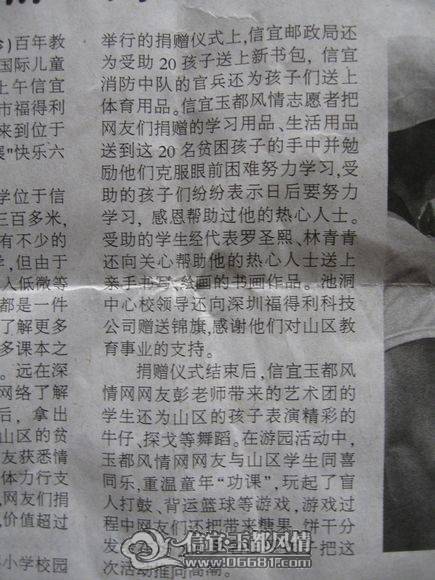 )百年教
国际儿童
上午信宜
市福得利
来到位于
"快乐六
学位于信
三百多米,
有不少的
但由于
入低微等
都是一件
了解更多
多课本之
。远在深
网络了解
后,拿出
山区的贫
友获悉情
体力行支
网友们捐
价值超过
小学校园
举行的捐赠仪式上,信宜邮政局还
为受助20孩子送上新书包,信宜
消防中队的官兵还为孩子们送上
体育用品。信宜玉都风情志愿者把
网友们捐赠的学习用品、生活用品
送到这20名贫困孩子的手中并勉
励他们克服眼前困难努力学习,受
助的孩子们纷纷表示日后要努力
学习,感恩帮助过他的热心人士。
受助的学生经代表罗圣熙、林青青
还向关心帮助他的热心人士送上
亲手书写、绘画的书画作品。池洞
中心校领导还向深圳福得利科技
公司赠送锦旗,感谢他们对山区教
育事业的支持。
捐赠仪式结束后,信宜玉都风
情网网友彭老师带来的艺术团的
学生还为山区的孩子表演精彩的
牛仔、探戈等舞蹈。在游园活动中,
玉都风情网网友与山区学生同喜
同乐,重温童年"功课",玩起了盲
人打鼓、背运篮球等游戏,游戏过
程中网友们还把带来糖果、饼干分
发 把这
次活动推向高潮。
信宜·玉都风情
www.06681.com